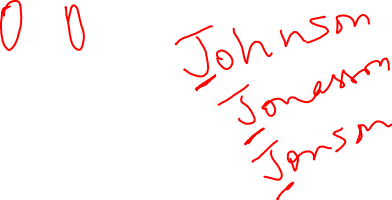 0 0
Johnson
Jonasson
Jonson